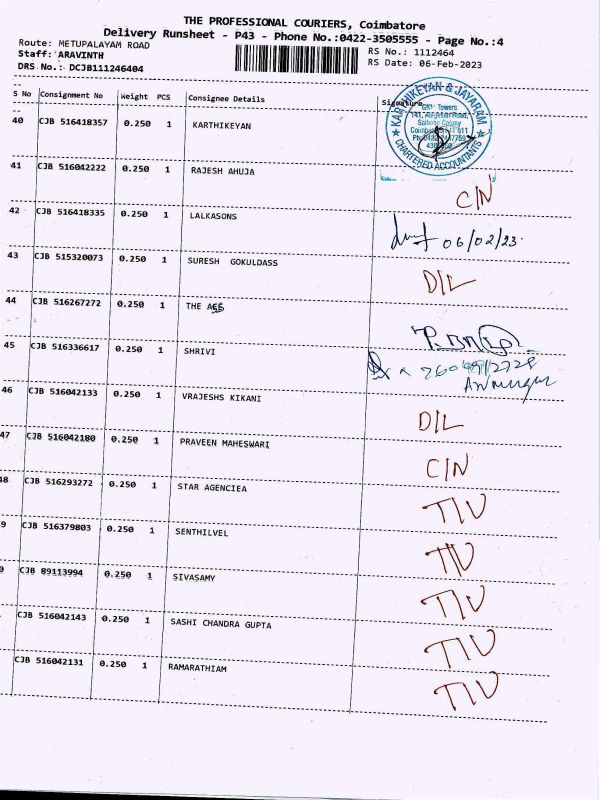 THE PROFESSIONAL COURIERS, Coimbatore
Delivery Runsheet - P43 - Phone No.:0422-3505555 - Page No.:4
Route: METUPALAYAM ROAD
Staff: ARAVINTH
DRS No.: DCJB111246404
RS No.: 1112464
RS Date: 06-Feb-2023
S No Consignment No Weight PCS Consignee Details Signature
40 CJB 516418357 0.250 1 KARTHIKEYAN
KARTHIKEYAN & JAYARAM
CHARTERED ACCOUNTANTS
Towers
Saibaba Colony
41 CJB 516042222 0.250 1 RAJESH AHUJA C/N
42 CJB 516418335 0.250 1 LALKASONS 06/02/23
43 CJB 515320073 0.250 1 SURESH GOKULDASS D/L
44 CJB 516267272 0.250 1 THE
45 CJB 516336617 0.250 1 SHRIVI
46 CJB 516042133 0.250 1 VRAJESHS KIKANI D/L
47 CJB 516042180 0.250 1 PRAVEEN MAHESWARI C/N
48 CJB 516293272 0.250 1 STAR AGENCIEA TIV
9 CJB 516379803 0.250 1 SENTHILVEL TIV
CJB 89113994 0.250 1 SIVASAMY TIV
CJB 516042143 0.250 1 SASHI CHANDRA GUPTA TIV
CJB 516042131 0.250 1 RAMARATHIAM TIV